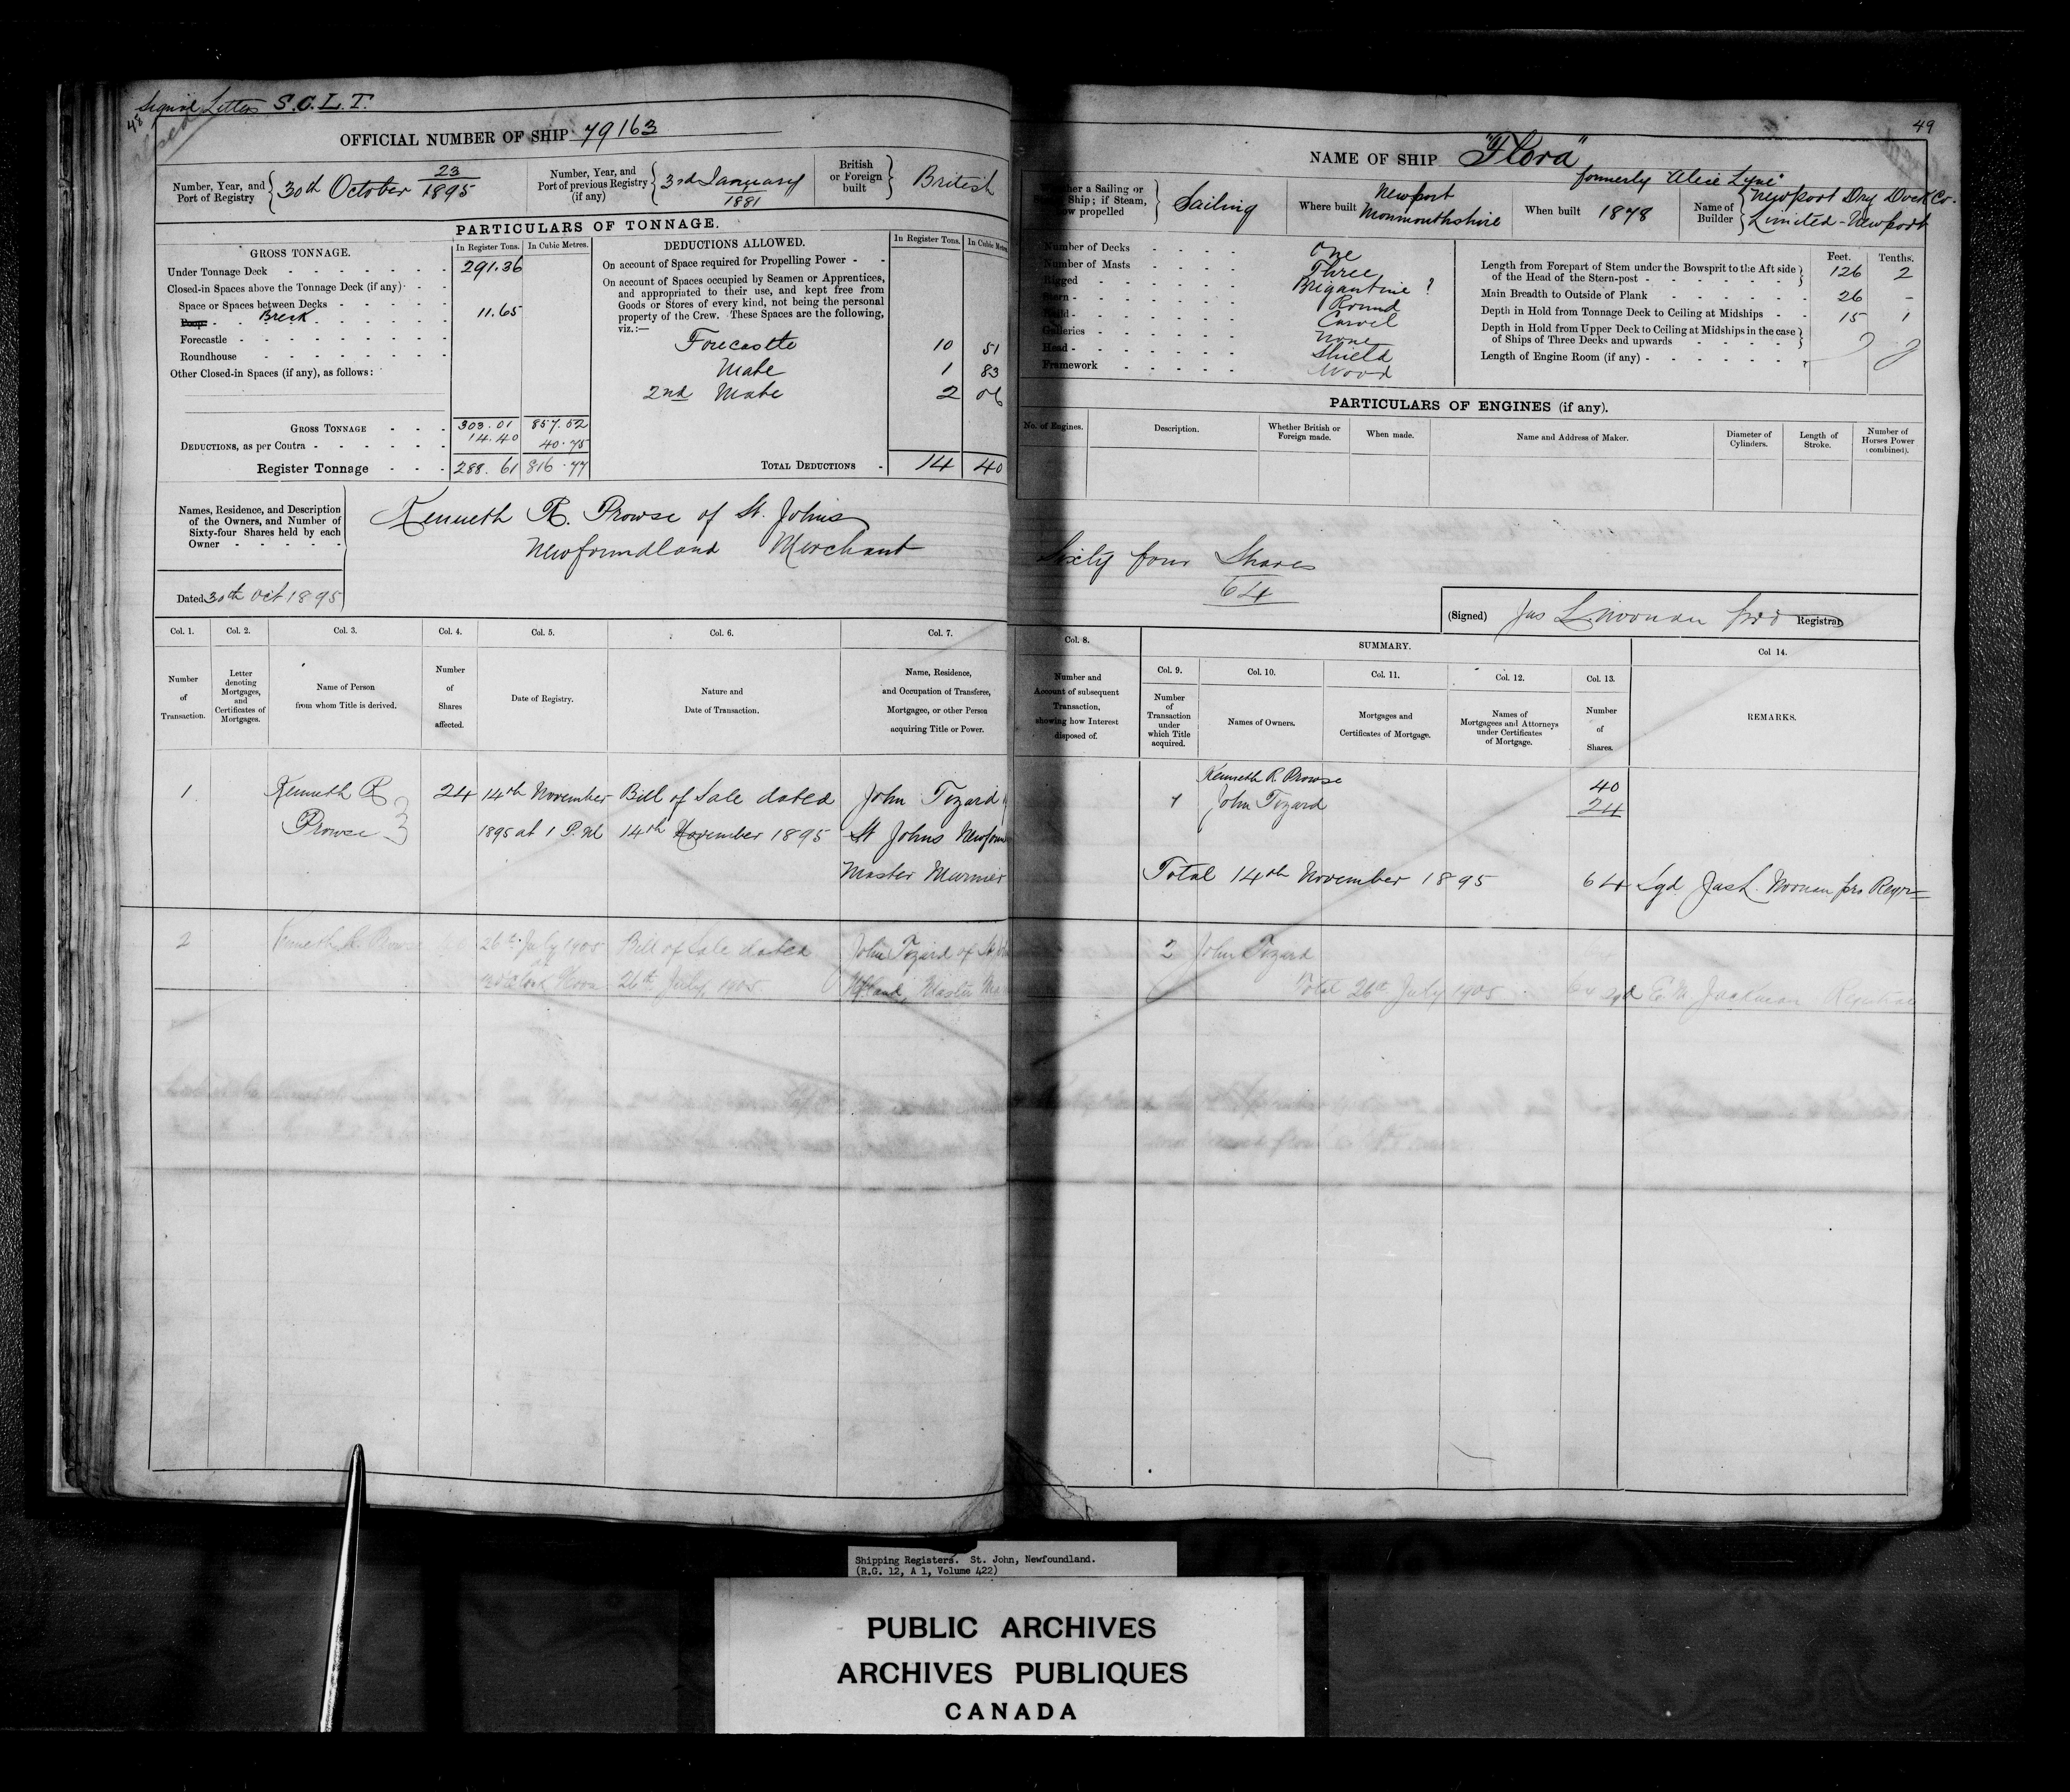 Signal Letters S.C.L.T.
48
OFFICIAL NUMBER OF SHIP 79163
Number, Year, and Port of Registry { 30th October 23/1895
Number, Year, and Port of previous Registry (if any) { 3rd January 1881
British or Foreign built } British
PARTICULARS OF TONNAGE.
GROSS TONNAGE. In Register Tons. In Cubic Metres.
Under Tonnage Deck 291.36
Closed-in Spaces above the Tonnage Deck (if any)
Space or Spaces between Decks
Poop Break 11.65
Forecastle
Roundhouse
Other Closed-in Spaces (if any), as follows:
GROSS TONNAGE 303.01 857.52
DEDUCTIONS, as per Contra 14.40 40.75
Register Tonnage 288.61 816.77
DEDUCTIONS ALLOWED. In Register Tons. In Cubic Metres
On account of Space required for Propelling Power
On account of Spaces occupied by Seamen or Apprentices,
and appropriated to their use, and kept free from
Goods or Stores of every kind, not being the personal
property of the Crew. These Spaces are the following,
viz.:—
Forecastle 10 51
Mate 1 83
2nd Mate 2 06
TOTAL DEDUCTIONS 14 40
Names, Residence, and Description
of the Owners, and Number of
Sixty-four Shares held by each
Owner
Kenneth R. Prowse of St. Johns
Newfoundland Merchant
Dated 30th Oct 1895
Col. 1. Col. 2. Col. 3. Col. 4. Col. 5. Col. 6. Col. 7.
Number of Transaction.
Letter denoting Mortgages, and Certificates of Mortgages.
Name of Person from whom Title is derived.
Number of Shares affected.
Date of Registry.
Nature and Date of Transaction.
Name, Residence, and Occupation of Transferee, Mortgagee, or other Person acquiring Title or Power.
1 Kenneth R 24 14th November Bill of Sale dated John Tizard
Prowse 1895 at 1 P.M 14th November 1895 St Johns
Master
2 Kenneth R. Prowse 26th July 1905 Bill of Sale dated John Tizard of St
26th July, 1905 and Master
49
NAME OF SHIP "Flora"
formerly "Alice Lyne"
a Sailing or Ship; if Steam, how propelled } Sailing
Where built Newport Monmouthshire
When built 1878
Name of Builder { Newport Dry Dock Co. Limited - Newport
Number of Decks One
Number of Masts Three
Rigged Brigantine ?
Stern Round
Build Carvel
Galleries None
Head Shield
Framework Wood
Feet. Tenths.
Length from Forepart of Stem under the Bowsprit to the Aft side of the Head of the Stern-post 126 2
Main Breadth to Outside of Plank 26 -
Depth in Hold from Tonnage Deck to Ceiling at Midships 15 1
Depth in Hold from Upper Deck to Ceiling at Midships in the case of Ships of Three Decks and upwards
Length of Engine Room (if any)
PARTICULARS OF ENGINES (if any).
No. of Engines. Description. Whether British or Foreign made. When made. Name and Address of Maker. Diameter of Cylinders. Length of Stroke. Number of Horses Power (combined).
Sixty four Shares
64
(Signed) Jas L. Noonan pro Registrar
Col. 8. SUMMARY. Col 14.
Number and Account of subsequent Transaction, showing how Interest disposed of.
Col. 9. Col. 10. Col. 11. Col. 12. Col. 13.
Number of Transaction under which Title acquired.
Names of Owners.
Mortgages and Certificates of Mortgage.
Names of Mortgagees and Attorneys under Certificates of Mortgage.
Number of Shares.
REMARKS.
Kenneth R. Prowse 40
1 John Tizard 24
Total 14th November 1895 64 Sgd Jas L. Noonan pro Regr
2 John Tizard
Total 26th July 1905 64 Sgd E. M. Jackman Registrar
Shipping Registers. St. John, Newfoundland.
(R.G. 12, A 1, Volume 422)
PUBLIC ARCHIVES
ARCHIVES PUBLIQUES
CANADA